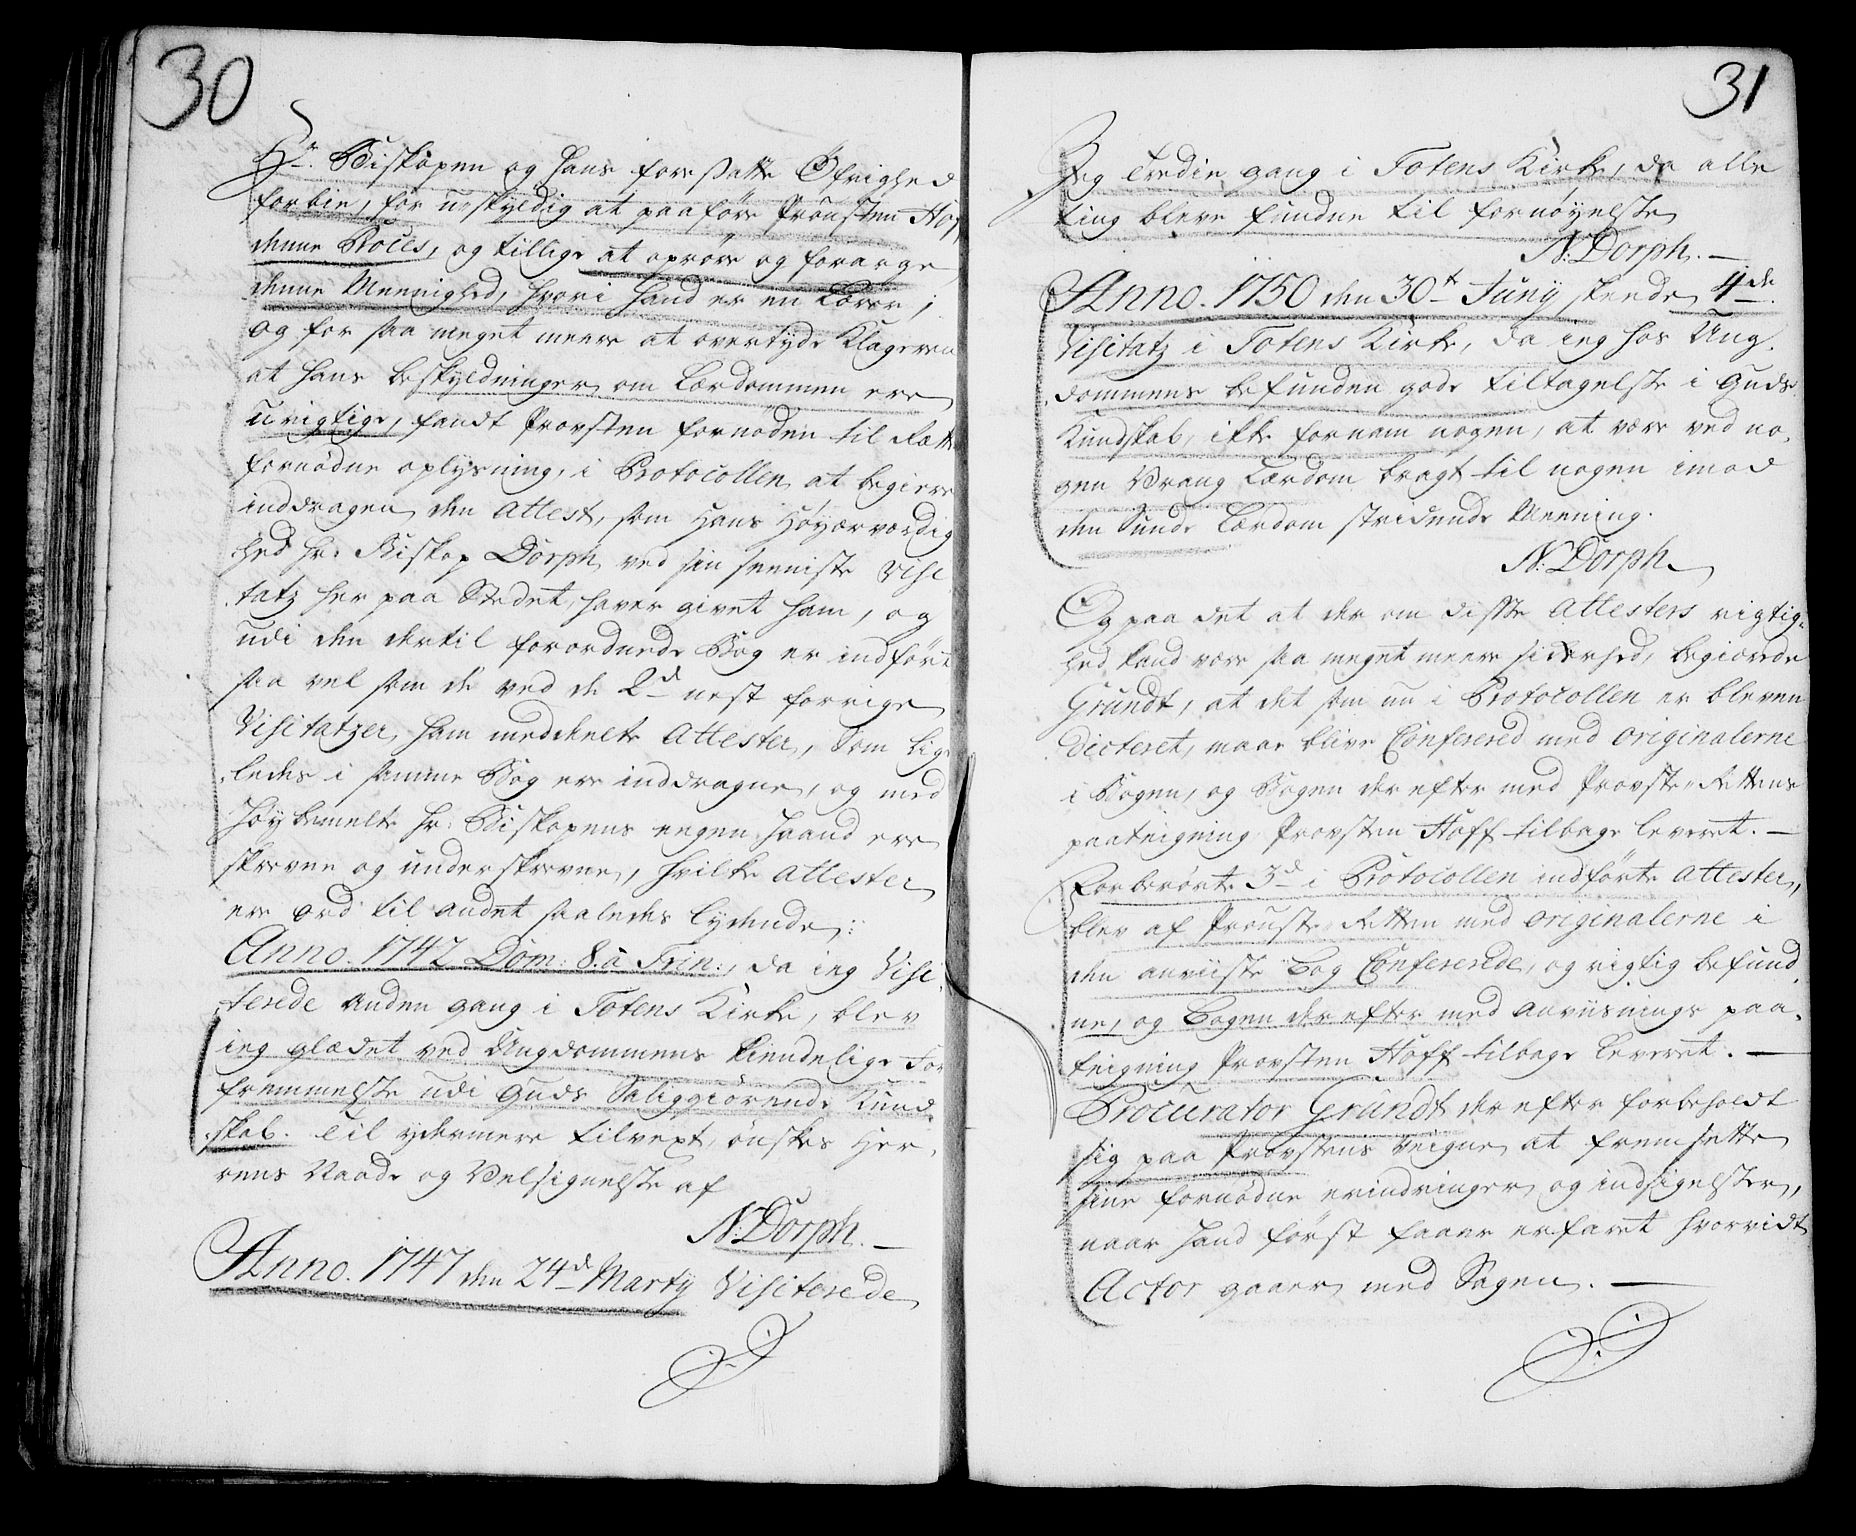 30
Hr. Biskopen og hans foresatte Øfrighed
forbie, for uskyldig at paaføre Prousten Hoff
denne Proces, og tillige at oprøre og forarge
denne Meenighed, hvori hand er en Lærer;
og for saa meget meere at overtyde Klageren
at hans beskyldninger om Lærdommen ere
urigtige, fandt Provsten fornøden til Rette
fornødne oplysning, i Protocollen at begiere
inddragen den Attest, som Hans Høyærværdig
hed hr. Biskop Dorph ved sin seeniste Visi
tatz her paa Stedet, haver givet ham, og
udi den dertil forordnede Bog er indført
saa vel som de ved de 2de nest forrige
Visitatzer ham meddeelte Attester, som lige
ledes i samme Bog ere inddragne, og med
høybemelte hr: Biskopens egen Haand ere
skrevne og underskrevne, hvilke Attester
ere ord til andet saaledes lydende:
Anno. 1742 Dom: 8. à Trin:, da ieg Visi
terede Anden gang i Totens Kirke, blev
ieg glædet ved Ungdommens kiendelige For
fremmelse udi Guds Saliggiørende Kund
skab. Til ydermere tilvext, ønskes Her
rens Naade og Velsignelse af
N: Dorph.
Anno. 1747 den 24d Martij Visiterede
31
Jeg Tredie gang i Totens Kirke, da alle
ting bleve fundne til fornøyelse
N: Dorph.
Anno. 1750 den 30t Junij skeede 4de
Visitatz i Totens Kirke, da ieg hos Ung
dommens befunden gode tiltagelse i Guds
Kundskab, ikke fornam nogen, at være ved no,
gen Vrang Lærdom bragt til nogen imod
den Sunde Lærdom stridende Meening.
N: Dorph
Og paa det at der om disse Attesters rigtig,
hed kand være saa meget meere sikerhed, begiærede
Grundt, at det som nu i Protocollen er bleven
Dicteret, maae blive Conferered med originalerne
i Bogen, og Bogen derefter med Provste-Rettens
paateigning Provsten Hoff tilbage leveret.
Forberørte 3d i Protocollen indførte Attester,
blev af Prouste-Retten med originalerne i
den anviiste Bog Confererede, og rigtig befund
ne, og Bogen derefter med anviisnings paa,
teigning Provsten Hoff tilbage leveret.
Procurator Grundt derefter forbeholdt
sig paa Provstens Veigne at fremsette
sine fornødne erindringer og indsigelser,
naar hand først faaer erfaret hvorvidt
Actor gaaer med Sagen.